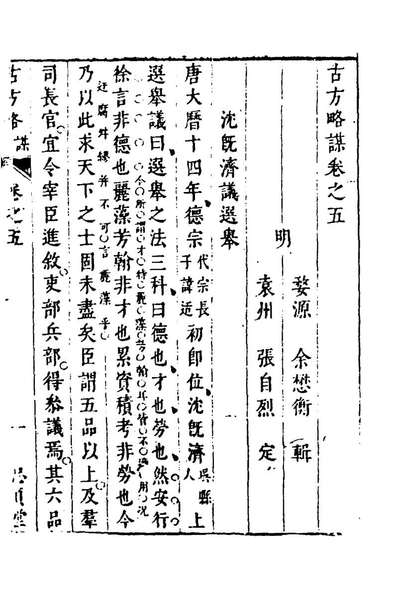 古方略謀卷之五
明
婺源 余懋衡 輯
袁州 張自烈 定
沈旣濟議選舉
唐大曆十四年德宗代宗長子諱适初即位沈旣濟吳縣人上
選舉議曰選舉之法三科曰德也才也勞也然安行
徐言非德也麗藻芳翰非才也累資積考非勞也今
乃以此求天下之士固未盡矣臣謂五品以上及羣
司長官宜令宰臣進敘吏部兵部得參議焉其六品
古方略謀
卷之五
一